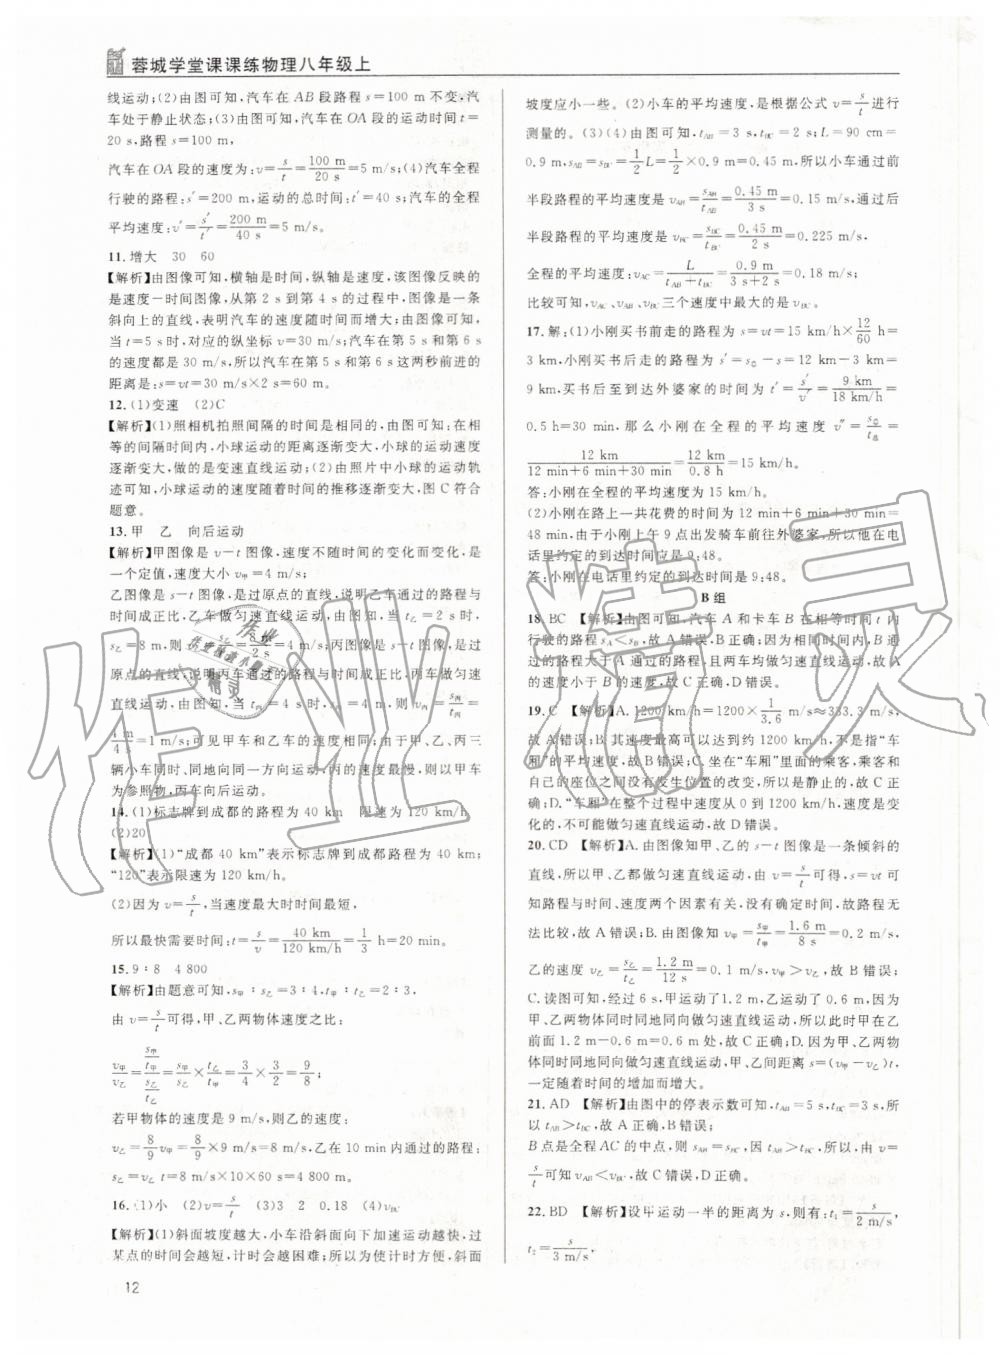 蓉城学堂课课练物理八年级上
线运动;(2)由图可知,汽车在 AB 段路程 s=100 m 不变,汽
车处于静止状态;(3)由图可知,汽车在 OA 段的运动时间 t=
20 s,路程 s=100 m,
汽车在 OA 段的速度为:v=s/t=100 m/20 s=5 m/s;(4)汽车全程
行驶的路程:s′=200 m,运动的总时间:t′=40 s,汽车的全程
平均速度:v′=s′/t′=200 m/40 s=5 m/s。
11.增大 30 60
【解析】由图像可知,横轴是时间,纵轴是速度,该图像反映的
是速度一时间图像,从第 2 s 到第 4 s 的过程中,图像是一条
斜向上的直线,表明汽车的速度随时间而增大;由图像可知,
当 t=5 s 时,对应的纵坐标 v=30 m/s;汽车在第 5 s 和第 6 s
的速度都是 30 m/s,所以汽车在第 5 s 和第 6 s 这两秒前进的
距离是:s=vt=30 m/s×2 s=60 m。
12.(1)变速 (2)C
【解析】(1)照相机拍照间隔的时间是相同的,由图可知:在相
等的间隔时间内,小球运动的距离逐渐变大,小球的运动速度
逐渐变大,做的是变速直线运动;(2)由照片中小球的运动轨
迹可知,小球运动的速度随着时间的推移逐渐变大,图 C 符合
题意。
13.甲 乙 向后运动
【解析】甲图像是 v-t 图像,速度不随时间的变化而变化,是
一个定值,速度大小 v甲=4 m/s;
乙图像是 s-t 图像,是过原点的直线,说明乙车通过的路程与
时间成正比,乙车做匀速直线运动,由图知,当 t乙=2 s 时,
s乙=8 m,则 v乙=s乙/t乙=8 m/2 s=4 m/s;丙图像是 s-t 图像,是过
原点的直线,说明丙车通过的路程与时间成正比,丙车做匀速
直线运动,由图知,当 t丙=4 s 时,s丙=4 m,则 v丙=s丙/t丙=
4 m/4 s=1 m/s;可见甲车和乙车的速度相同;由于甲、乙、丙三
辆小车同时、同地向同一方向运动,v甲=v乙>v丙,所以以甲车
为参照物,丙车向后运动。
14.(1)标志牌到成都的路程为 40 km 限速为 120 km/h
(2)20
【解析】(1)“成都 40 km”表示标志牌到成都的路程为 40 km;
“120”表示限速为 120 km/h。
(2)因为 v=s/t,当速度最大时时间最短,
所以最快需要时间:t=s/v=40 km/120 km/h=1/3 h=20 min。
15.9∶8 4 800
【解析】由题意可知,s甲∶s乙=3∶4,t甲∶t乙=2∶3,
由 v=s/t可得,甲、乙两物体速度之比:
v甲/v乙=(s甲/t甲)/(s乙/t乙)=s甲/s乙×t乙/t甲=3/4×3/2=9/8;
若甲物体的速度是 9 m/s,则乙的速度:
v乙=8/9v甲=8/9×9 m/s=8 m/s,乙在 10 min内通过的路程:
s乙=v乙t=8 m/s×10×60 s=4 800 m。
16.(1)小 (2)v=s/t (3)3 2 0.18 (4)vBC
【解析】(1)斜面坡度越大,小车沿斜面向下加速运动越快,过
某点的时间会越短,计时会越困难;所以为使计时方便,斜面
坡度应小一些。(2)小车的平均速度,是根据公式 v=s/t进行
测量的。(3)(4)由图可知:tAB=3 s,tBC=2 s;L=90 cm=
0.9 m,sAB=sBC=1/2L=1/2×0.9 m=0.45 m。所以小车通过前
半段路程的平均速度 vAB=sAB/tAB=0.45 m/3 s=0.15 m/s,通过后
半段路程的平均速度是 vBC=sBC/tBC=0.45 m/2 s=0.225 m/s,
全程的平均速度:vAC=L/(tAB+tBC)=0.9 m/(3 s+2 s)=0.18 m/s;
比较可知,vAC、vAB、vBC三个速度中最大的是 vBC。
17.解:(1)小刚买书前走的路程为 s=vt=15 km/h×12/60 h=
3 km,小刚买书后走的路程为 s′=s总-s=12 km-3 km=
9 km,买书后至到达外婆家的时间为 t′=s′/v′=9 km/18 km/h=
0.5 h=30 min,那么小刚在全程的平均速度 v″=s总/t总=
12 km/(12 min+6 min+30 min)=12 km/0.8 h=15 km/h。
答:小刚在全程的平均速度为 15 km/h。
(2)小刚在路上一共花费的时间为 12 min+6 min+30 min=
48 min,由于小刚上午 9 点出发骑车前往外婆家,所以他在电
话里约定的到达时间应是 9:48。
答:小刚在电话里约定的到达时间是 9:48。
B 组
18.BC 【解析】由图可知,汽车 A 和卡车 B 在相等时间 t 内
行驶的路程 sA<sB,故 A 错误,B 正确;因为相同时间内,B 通
过的路程大于 A 通过的路程,且两车均做匀速直线运动,故 A
的速度小于 B 的速度,故 C 正确,D 错误。
19.C 【解析】A.1200 km/h=1200×1/3.6 m/s≈333.3 m/s,
故 A 错误;B.其速度最高可以达到大约 1200 km/h,不是指“车
厢”的平均速度,故 B 错误;C.坐在“车厢”里面的乘客,乘客和
自己的座位之间没有发生位置的改变,所以是静止的,故 C 正
确;D.“车厢”在整个过程中速度从 0 到 1200 km/h,速度是变
化的,不可能做匀速直线运动,故 D 错误。
20.CD 【解析】A.由图像知甲、乙的 s-t 图像是一条倾斜的
直线,所以甲、乙都做匀速直线运动,由 v=s/t可得,s=vt 可
知路程与时间、速度两个因素有关,没有确定时间,故路程无
法比较,故 A 错误;B.由图像知 v甲=s甲/t甲=1.6 m/8 s=0.2 m/s,
乙的速度 v乙=s乙/t乙=1.2 m/12 s=0.1 m/s,v甲>v乙,故 B 错误;
C.读图可知,经过 6 s,甲运动了1.2 m,乙运动了 0.6 m,因为
甲、乙两物体同时同地同向做匀速直线运动,所以此时甲在乙
前面 1.2 m-0.6 m=0.6 m 处,故 C 正确;D.甲、乙两个物
体同时同地同向做匀速直线运动,甲、乙间距离 s=(v甲-v乙)t,
一定随着时间的增加而增大。
21.AD 【解析】由图中的停表示数可知,tAB=5 s,tBC=3 s,所
以 tAB>tBC,故 A 正确,B 错误;
B 点是全程 AC 的中点,则 sAB=sBC,因 tAB>tBC,所以,由
v=s/t可知 vAB<vBC,故 C 错误,D 正确。
22.BD 【解析】设甲运动一半的距离为 s,则有:t₁=s/2 m/s,
t₂=s/3 m/s,
12
作业精灵
作业
精灵